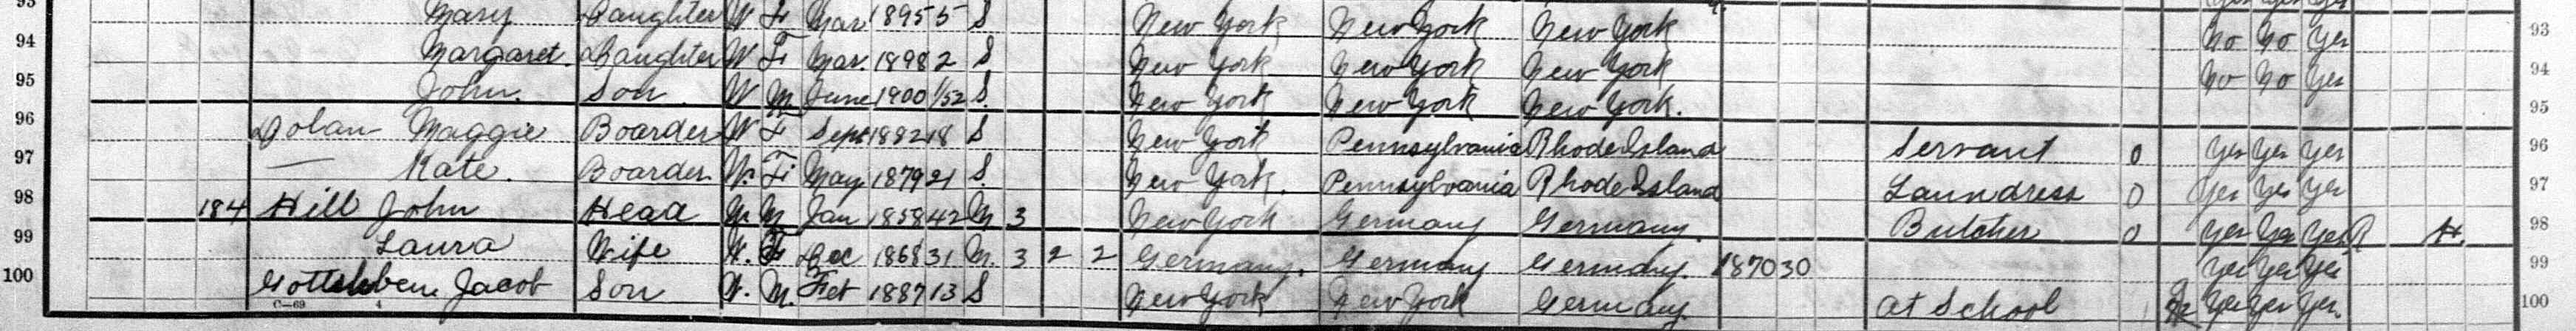 93 Mary Daughter W F Mar 1895 5 S New York New York New York
94 Margaret. Daughter W F Mar. 1898 2 S New York New York New York no no yes 93
95 John. Son W M June 1900 1/52 S. New York New York New York. no no yes 94
95
96 Dolan Maggie Boarder W F Sept 1882 18 S New York Pennsylvania Rhode Island Servant 0 yes yes yes 96
97 — Kate. Boarder. W. F. May 1879 21 S. New York. Pennsylvania Rhode Island Laundress 0 yes yes yes 97
98 184 Hill John Head W. M. Jan 1858 42 M 3 New York Germany Germany. Butcher 0 yes yes yes R H. 98
99 Laura Wife W. F Dec 1868 31 M. 3 2 2 Germany. Germany Germany. 1870 30 yes yes yes 99
100 Jacob Son W. M. Feb 1887 13 S New York New York Germany. At School yes yes yes. 100
C—69 4